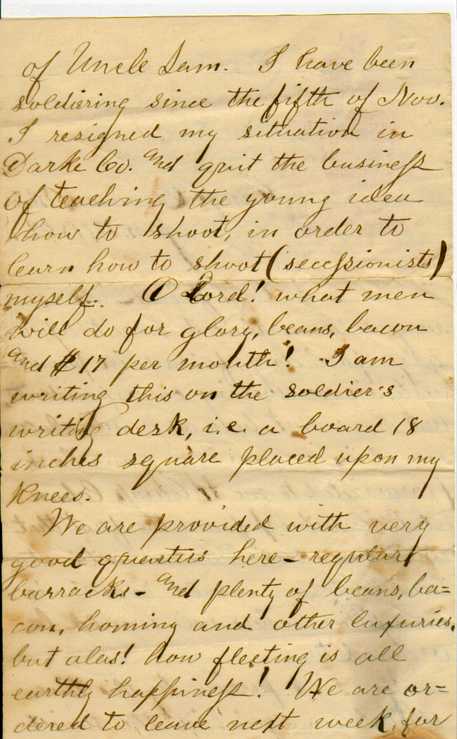 of Uncle Sam. I have been
soldiering since the fifth of Nov.
I resigned my situation in
Darke Co. and quit the business
of teaching the young idea
how to shoot, in order to
learn how to shoot (secessionists)
myself. O Lord! what men
will do for glory, beans, bacon
and $17 per month! I am
writing this on the soldier's
writing desk, i.e. a board 18
inches square placed upon my
knees.
We are provided with very
good quarters here - regular
barracks - and plenty of beans, ba=
con, hominy and other luxuries.
but alas! how fleeting is all
earthly happiness! We are or=
dered to leave next week, for